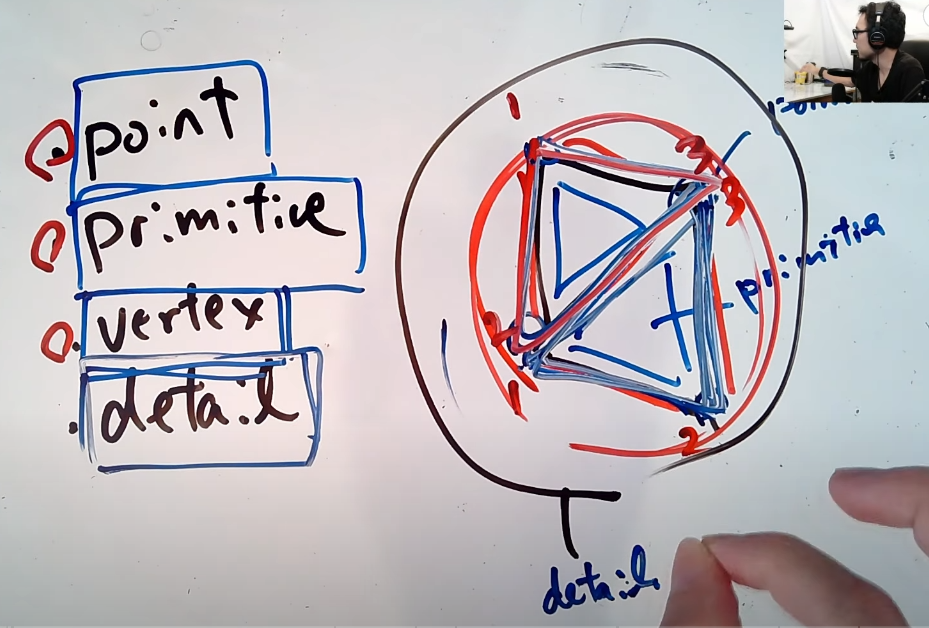 point
primitive
vertex
detail
1
3
3
2
1
2
primitive
detail